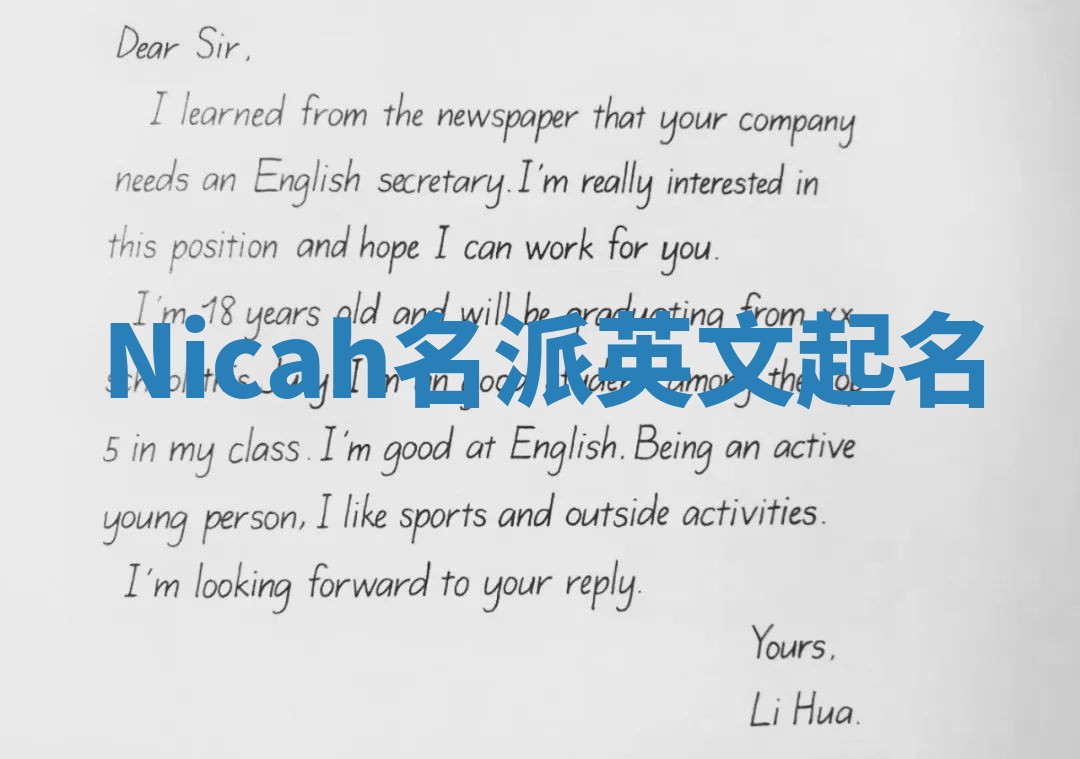 Dear Sir,
I learned from the newspaper that your company
needs an English secretary. I'm really interested in
this position and hope I can work for you.
I'm 18 years old and will be graduating from xx
Nicah名派英文起名
school this July. I'm an good student among the top
5 in my class. I'm good at English. Being an active
young person, I like sports and outside activities.
I'm looking forward to your reply.
Yours,
Li Hua.